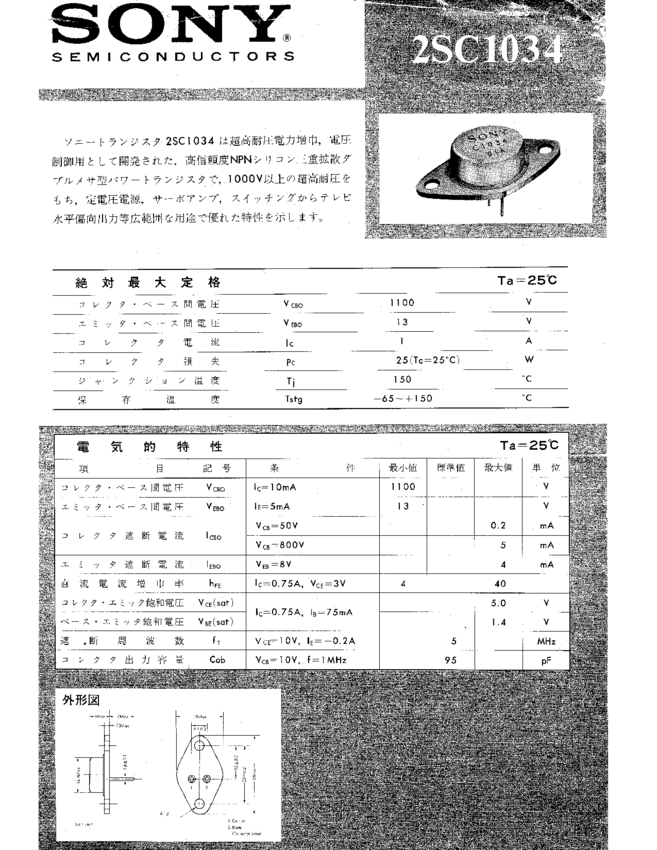 SONY®
SEMICONDUCTORS
2SC1034
ソニートランジスタ 2SC1034 は超高耐圧電力増巾，電圧
制御用として開発された，高信頼度NPNシリコン三重拡散ダ
ブルメサ型パワートランジスタで，1000V以上の超高耐圧を
もち，定電圧電源，サーボアンプ，スイッチングからテレビ
水平偏向出力等広範囲な用途で優れた特性を示します。
SONY
C1034
絶対最大定格 Ta＝25℃
コレクタ・ベース間電圧 VCBO 1100 V
エミッタ・ベース間電圧 VEBO 13 V
コレクタ電流 Ic 1 A
コレクタ損失 Pc 25(Tc=25°C) W
ジャンクション温度 Tj 150 °C
保存温度 Tstg −65～+150 °C
電気的特性 Ta＝25℃
項目 記号 条件 最小値 標準値 最大値 単位
コレクタ・ベース間電圧 VCBO Ic=10mA 1100 V
エミッタ・ベース間電圧 VEBO IE=5mA 13 V
コレクタ遮断電流 ICBO VCB=50V 0.2 mA
VCB=800V 5 mA
エミッタ遮断電流 IEBO VEB=8V 4 mA
直流電流増巾率 hFE Ic=0.75A, VCE=3V 4 40
コレクタ・エミッタ飽和電圧 VCE(sat) Ic=0.75A, IB=75mA 5.0 V
ベース・エミッタ飽和電圧 VBE(sat) 1.4 V
遮断周波数 fT VCE=10V, IE=−0.2A 5 MHz
コレクタ出力容量 Cob VCB=10V, f=1MHz 95 pF
外形図